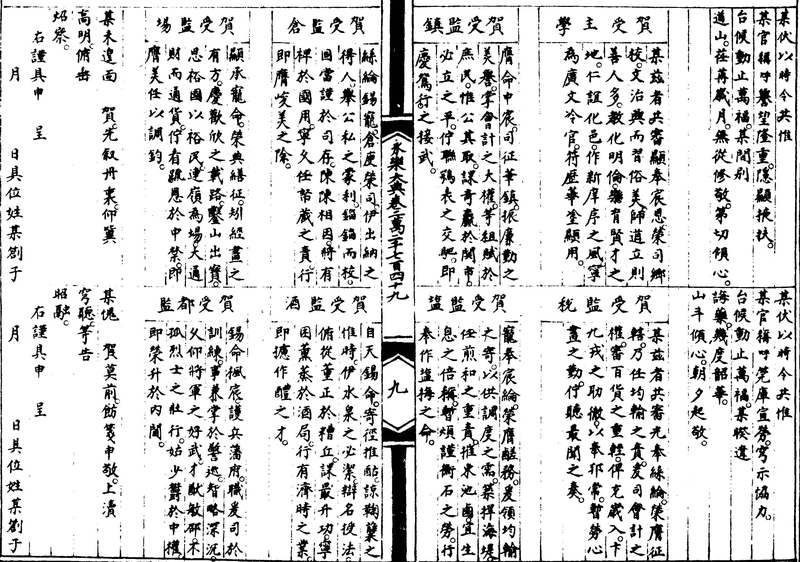 某伏以時令共惟
某官稱呼譽望隆重隱顯掖扶
台候動止萬福某間別
道山荏苒歲月無從修敬第切傾心
賀受主學
某茲者共審顯奉宸恩榮司鄉
校文治興而習俗美師道立則
善人多教化明倫樂育賢才之
地仁誼化邑作新庠序之風寧
為廣文令官待歷華塗顯用
賀受監鎮
膺命中宸司征華鎮振廉勤之
美譽掌會計之大權等租賦於
庶民惟公其取課奇羸於關市
必立之平佇聯鵷表之交馳即
慶鴛行之接武
某伏以時令共惟
某官稱呼筦庫宣勞穹示協力
台候動止萬福某暌違
誨藥幾度韶華
山斗傾心朝夕起敬
賀受監稅
某茲者共審光奉絲綸榮膺征
榷乃任均輸之責爰司會計之
權審百貨之重輕俾充歲入卞
九戎之助徹以奉邦常暫勞心
畫之勤佇聽最聞之奏
賀受監鹽
寵奉宸綸榮膺醝務爰領均輸
之寄以供調度之需築捍海堤
任煎和之重責摧東池鹵宜生
息之倍稱暫煩謹衡石之勞行
奉作鹽梅之命
永樂大典卷二萬二千七百四十九
九
賀受監倉
絲綸錫寵倉庾榮司伊出納之
得人舉公私之蒙利錙銖而校
固當謹於司存陳陳相因將有
裨於國用寧久任帑藏之責行
即膺峻美之除
賀受監場
顯承寵命榮典繕征矧經畫之
有方慶歡欣之載路鑿山出寶
思裕國以裕民達嶺為場大通
財而通貨佇看顯應於中禁即
膺美任以調鈞
某未遑面 賀先叙丹衷仰冀
高明俯垂
炤察
右謹具申 呈
月 日具位姓某劄子
賀受監酒
自天錫命寄徑推酤諒麴糵之
惟時伊水泉之必潔辯名役法
俯從董正於糟立課最升功寧
困薰蒸於酒局行有濟時之業
即攄作醴之才
賀受都監
錫命楓宸護兵藩府職爰司於
訓練事兼掌於警巡智略深沉
久仰將軍之好武才猷敏邵不
孤烈士之壯行姑少鬱於中權
即榮升於內閫
某愧 賀莫前飭牋申敬上瀆
穹聽等告
昭融
右謹具申 呈
月 日具位姓某劄子